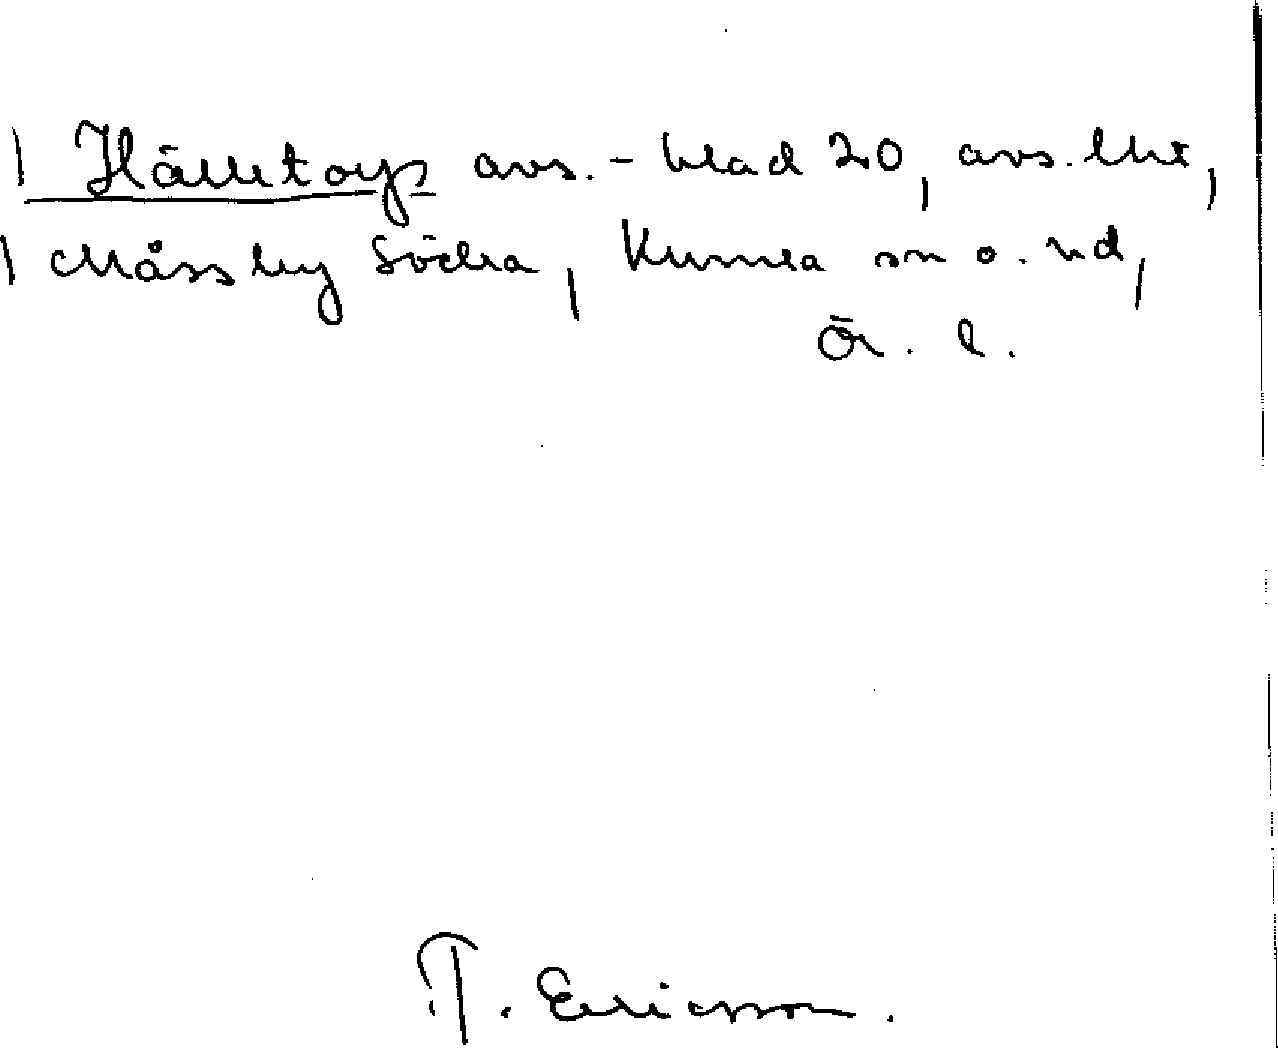 | Hälletorp avs. - blad 20, avs. lht,
| Mossby Södra, Kumla sn o. hd,
Ör. l.
T. Ericsson.